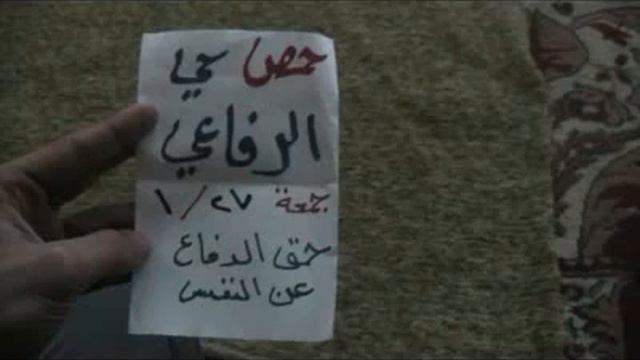 حمص حي
الرفاعي
جمعة ٢٧/١
حق الدفاع
عن النفس